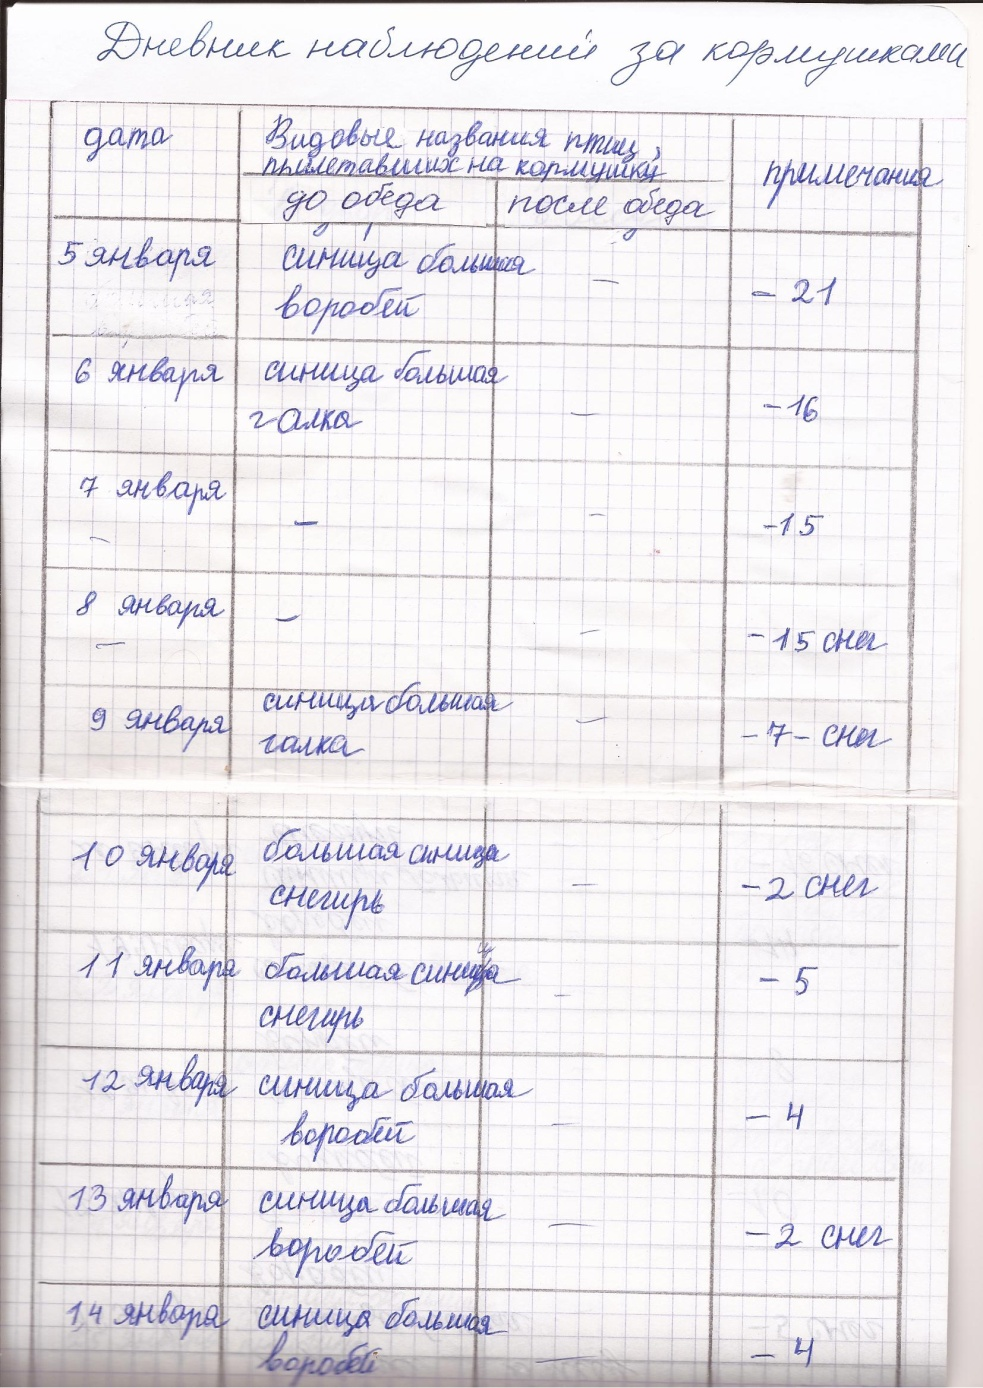 Дневник наблюдений за кормушками
дата
Видовые названия птиц,
прилетавших на кормушку
примечания
до обеда
после обеда
5 января
синица большая
воробей
–
- 21
6 января
синица большая
галка
–
-16
7 января
–
–
–
-15
8 января
–
–
–
-15 снег
9 января
синица большая
галка
–
-7- снег
10 января
большая синица
снегирь
–
-2 снег
11 января
большая синица
снегирь
–
- 5
12 января
синица большая
воробей
–
- 4
13 января
синица большая
воробей
–
-2 снег
14 января
синица большая
воробей
–
- 4